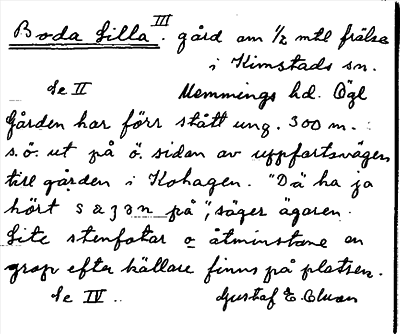 Boda Lilla III. gård om 1/2 mtl frälse
i Kimstads sn.
Se II Memmings hd. Ögl
Gården har förr stått ung. 300 m.
s.ö. ut på ö. sidan av uppfartsvägen
till gården i Kohagen. "Dä ha ja
hört sägan på", säger ägaren.
Lite stenfötar o åtminstone en
grop efter källare finns på platsen.
Se IV. Gustaf E. Olsson